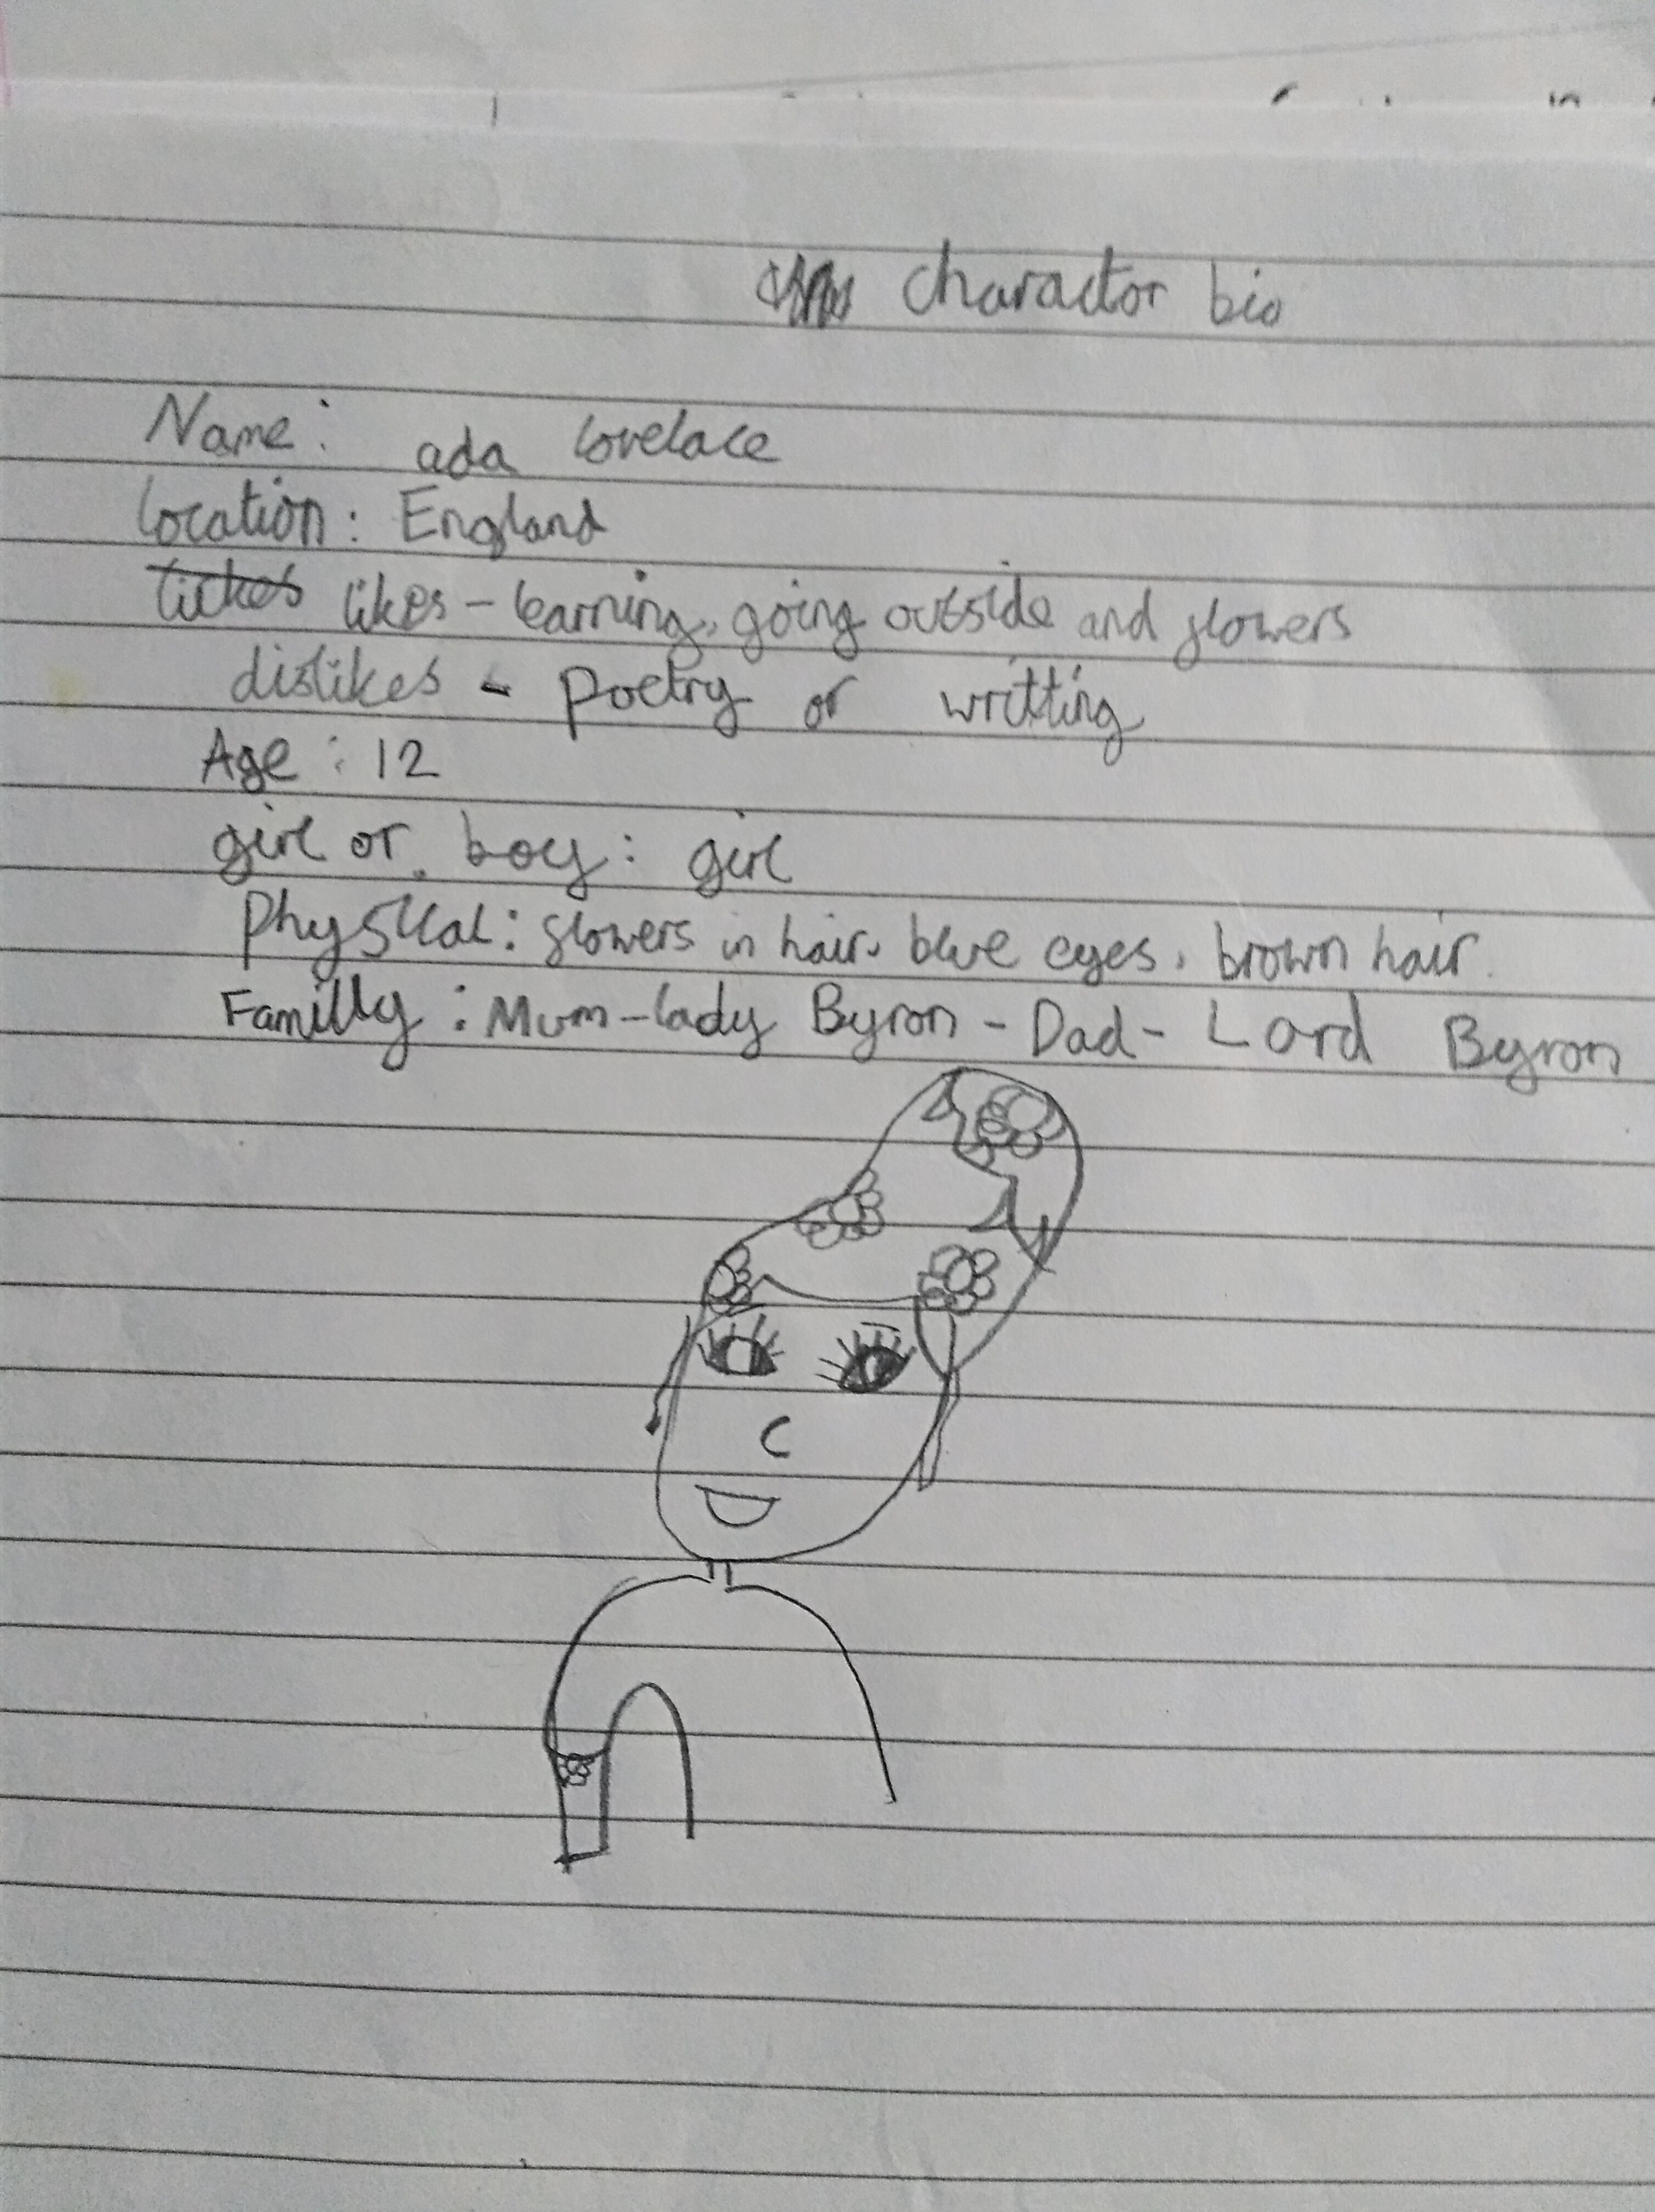 charactor bio
Name: ada lovelace
location: England
likes - learning, going outside and flowers
dislikes - poetry or writting
Age: 12
girl or boy: girl
Physical: flowers in hair, blue eyes, brown hair.
Familly: Mum-lady Byron - Dad - Lord Byron